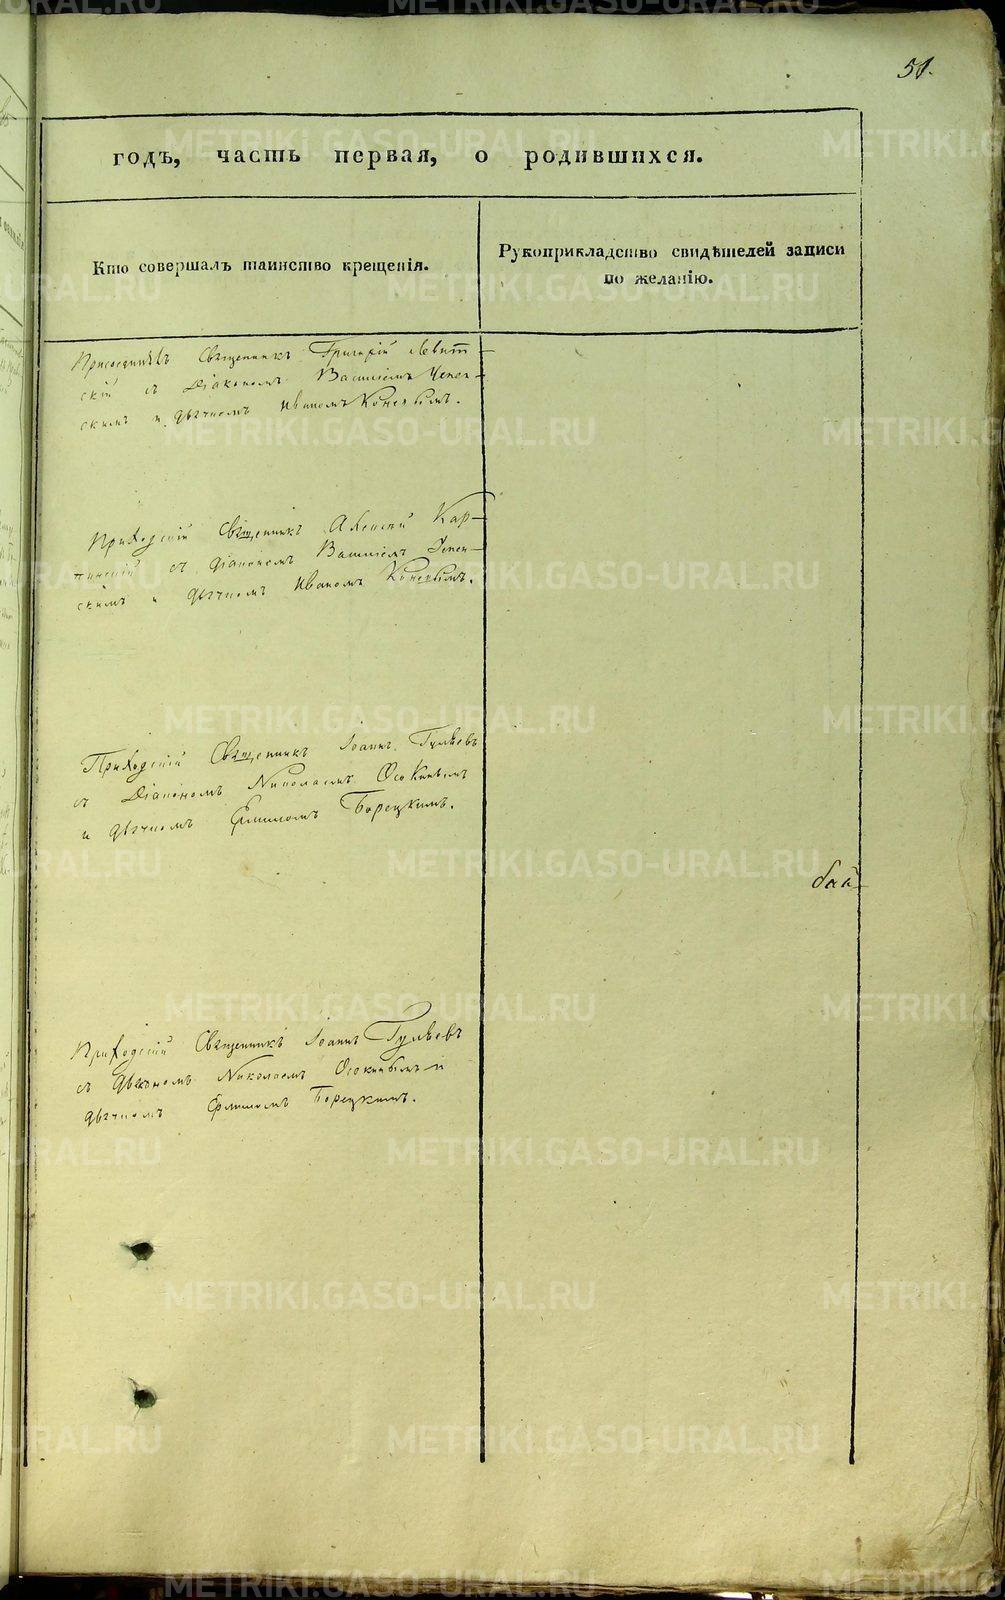 51.
годъ, часть первая, о родившихся.
Кто совершалъ таинство крещенія.
Рукоприкладство свидѣтелей записи
по желанію.
Священникъ Григорій Левит-
скій съ Діакономъ Василіемъ
скимъ и дьячкомъ Иваномъ Коневымъ.
Приходскій Священникъ Алексѣй Кар-
пинскій съ діакономъ Василіемъ
скимъ и дьячкомъ Иваномъ Коневымъ.
Приходскій Священникъ Іоаннъ Гуляевъ
съ Діакономъ Николаемъ Осокинымъ
и дьячкомъ Борецкимъ.
бай
Приходскій Священникъ Іоаннъ Гуляевъ
съ діакономъ Николаемъ Осокинымъ и
дьячкомъ Борецкимъ.
METRIKI.GASO-URAL.RU